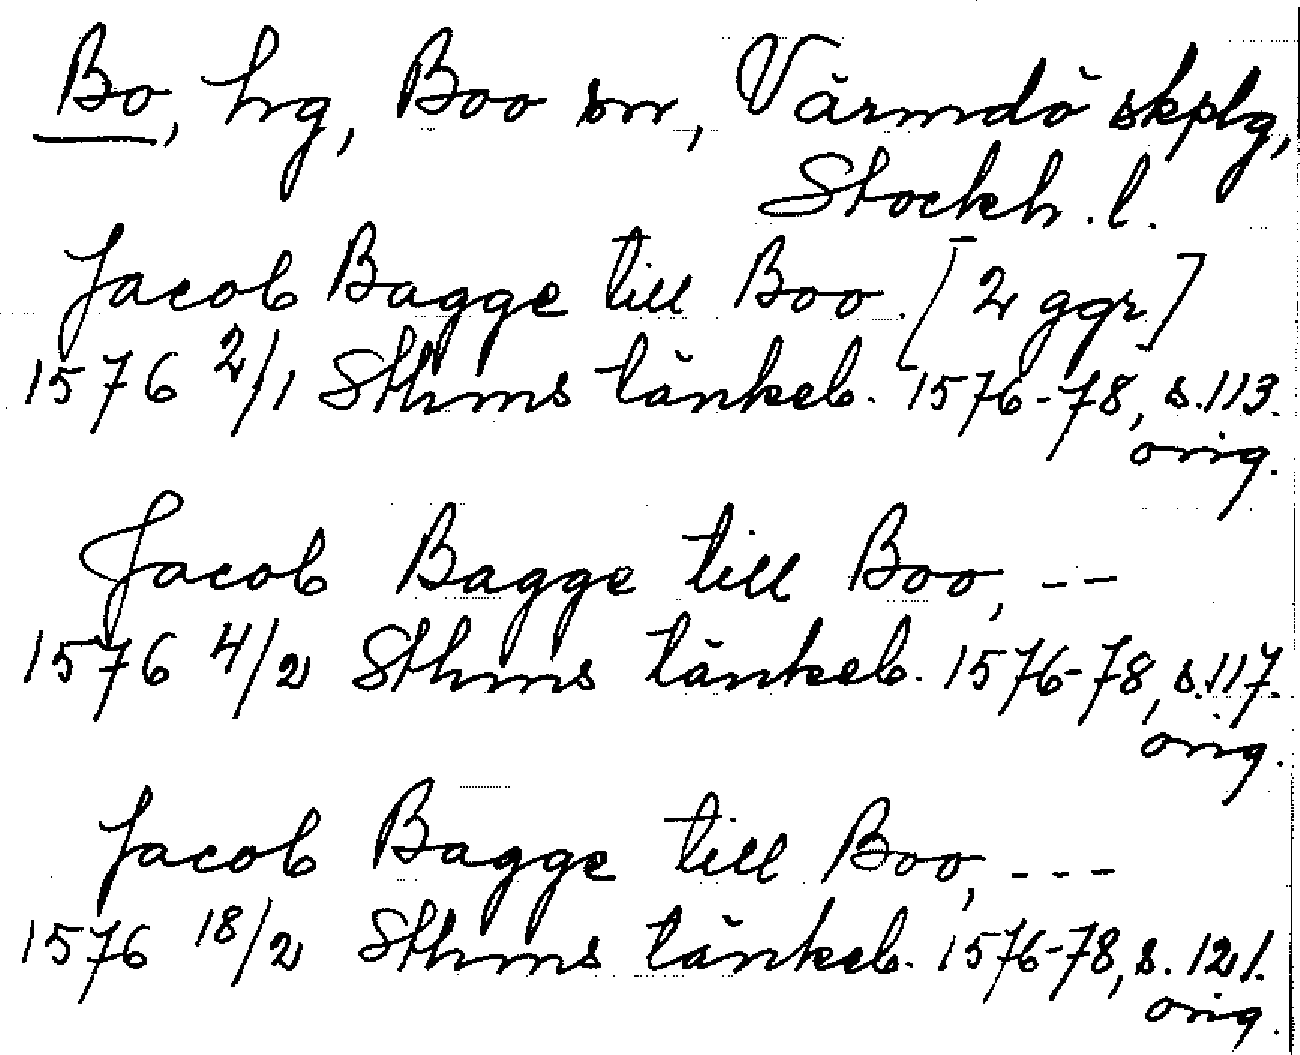 Bo, hg, Boo sn, Värmdö skplg,
Stockh. l.
Jacob Bagge till Boo. [2 ggr.]
1576 2/1 Sthms tänkeb. 1576-78, s. 113.
orig.
Jacob Bagge till Boo, --
1576 4/2 Sthms tänkeb. 1576-78, s. 117.
orig.
Jacob Bagge till Boo, ---
1576 18/2 Sthms tänkeb. 1576-78, s. 121.
orig.